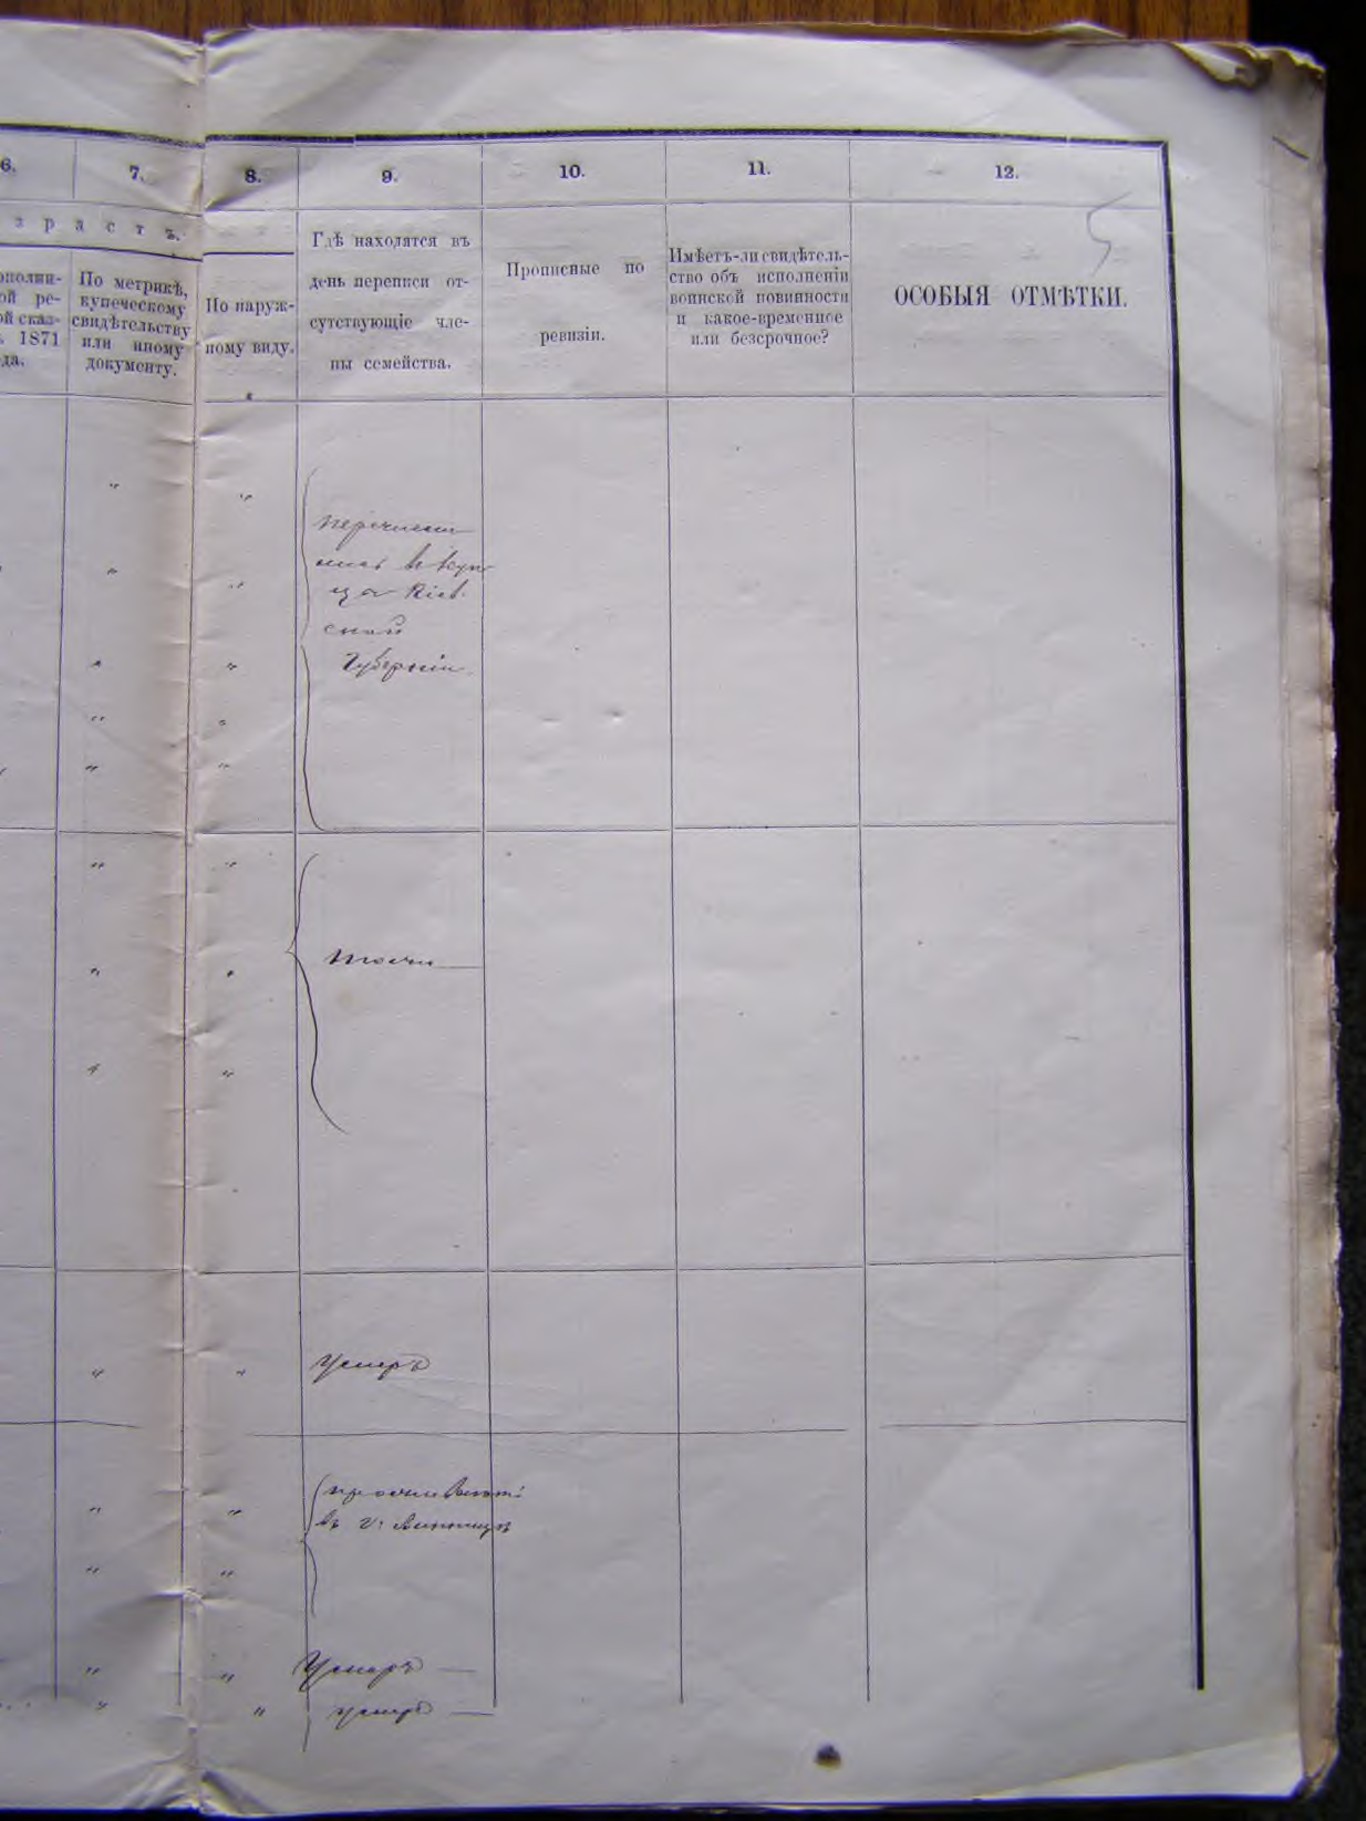 6. 7. 8. 9. 10. 11. 12.
5
з р а с т ъ.
ополни-
ой ре-
ой сказ-
1871
да.
По метрикѣ,
купеческому
свидѣтельству
или иному
документу.
По наруж-
ному виду.
Гдѣ находятся въ
день переписи от-
сутствующіе чле-
ны семейства.
Прописные по
ревизіи.
Имѣетъ-ли свидѣтель-
ство объ исполненіи
воинской повинности
и какое-временное
или безсрочное?
ОСОБЫЯ ОТМѢТКИ.
перечисли
лись въ куп
ца Кіев.
ской
Губерніи
тоже
умеръ
проживаютъ
въ г. Винницѣ
Умеръ
умеръ